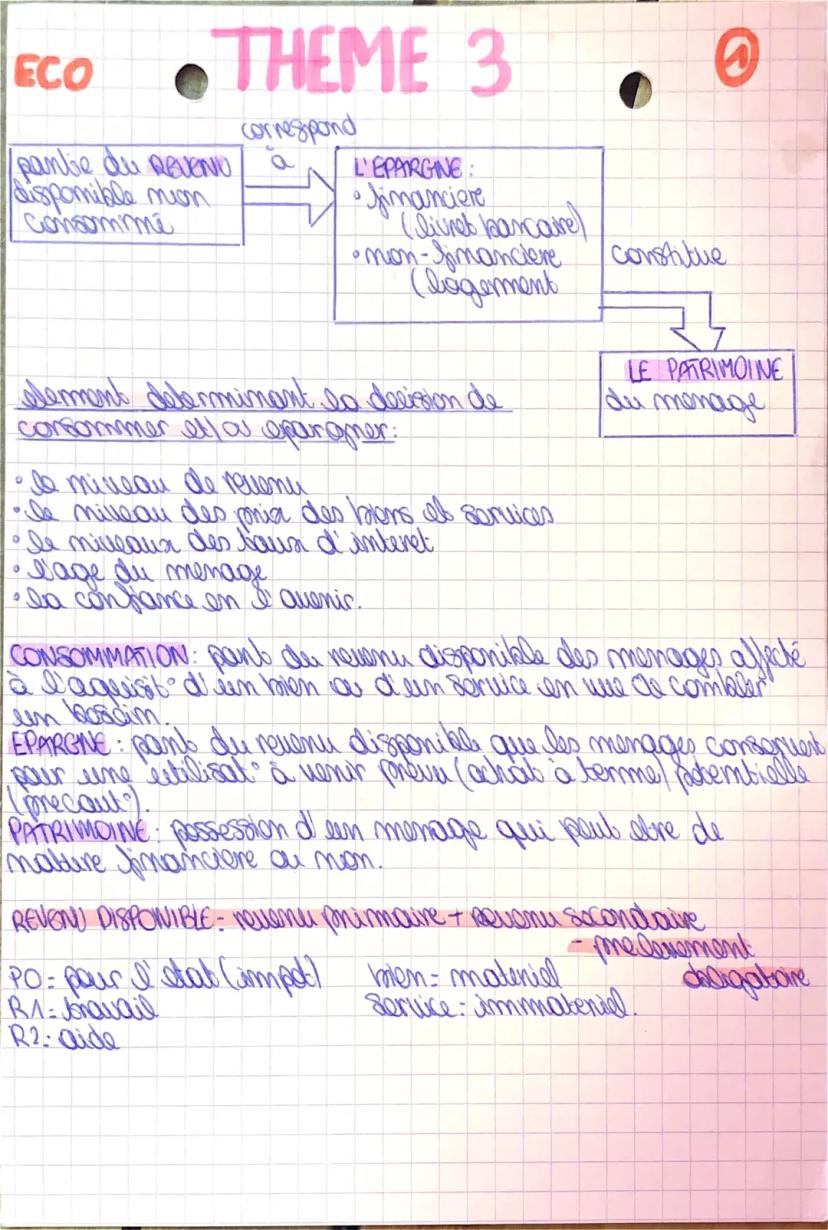 ECO
THEME 3
1
correspond
à
partie du REVENU
disponible non
consommé
L'EPARGNE :
• financiere
(livret bancaire)
• non-financiere
(logement
constitue
LE PATRIMOINE
du menage
element determinant la decision de
consommer et/ou epargner:
• le niveau de revenu
• le niveau des prix des biens et services
• le niveaux des taux d'interet
• l'age du menage
• la confiance en l'avenir.
CONSOMMATION : part du revenu disponible des menages affecté
à l'aquisit° d'un bien ou d'un service en vue de combler
un besoin.
EPARGNE : part du revenu disponible que les menages conservent
pour une utilisat° à venir prevu (achat à terme) potentielle
(precaut°).
PATRIMOINE : possession d'un menage qui peut etre de
nature financiere ou non.
REVENU DISPONIBLE = revenu primaire + revenu secondaire
- prelevement
obligatoire
PO = pour l'etat (impot)
R1 = travail
R2 = aide
bien = materiel
service = immateriel.